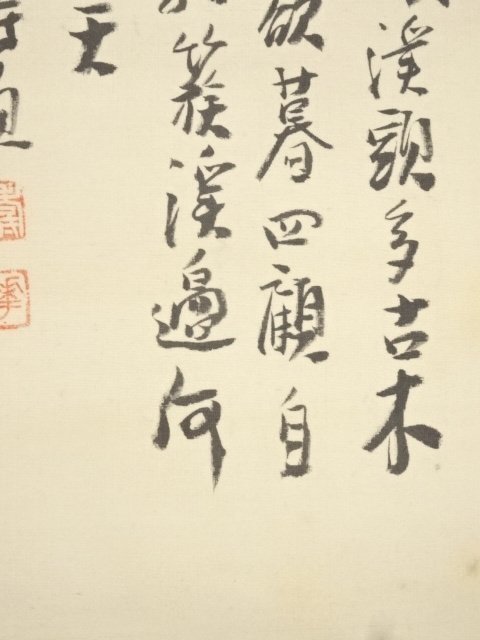 溪頭多古木
欲暮四顧自
簇溪邊何
天